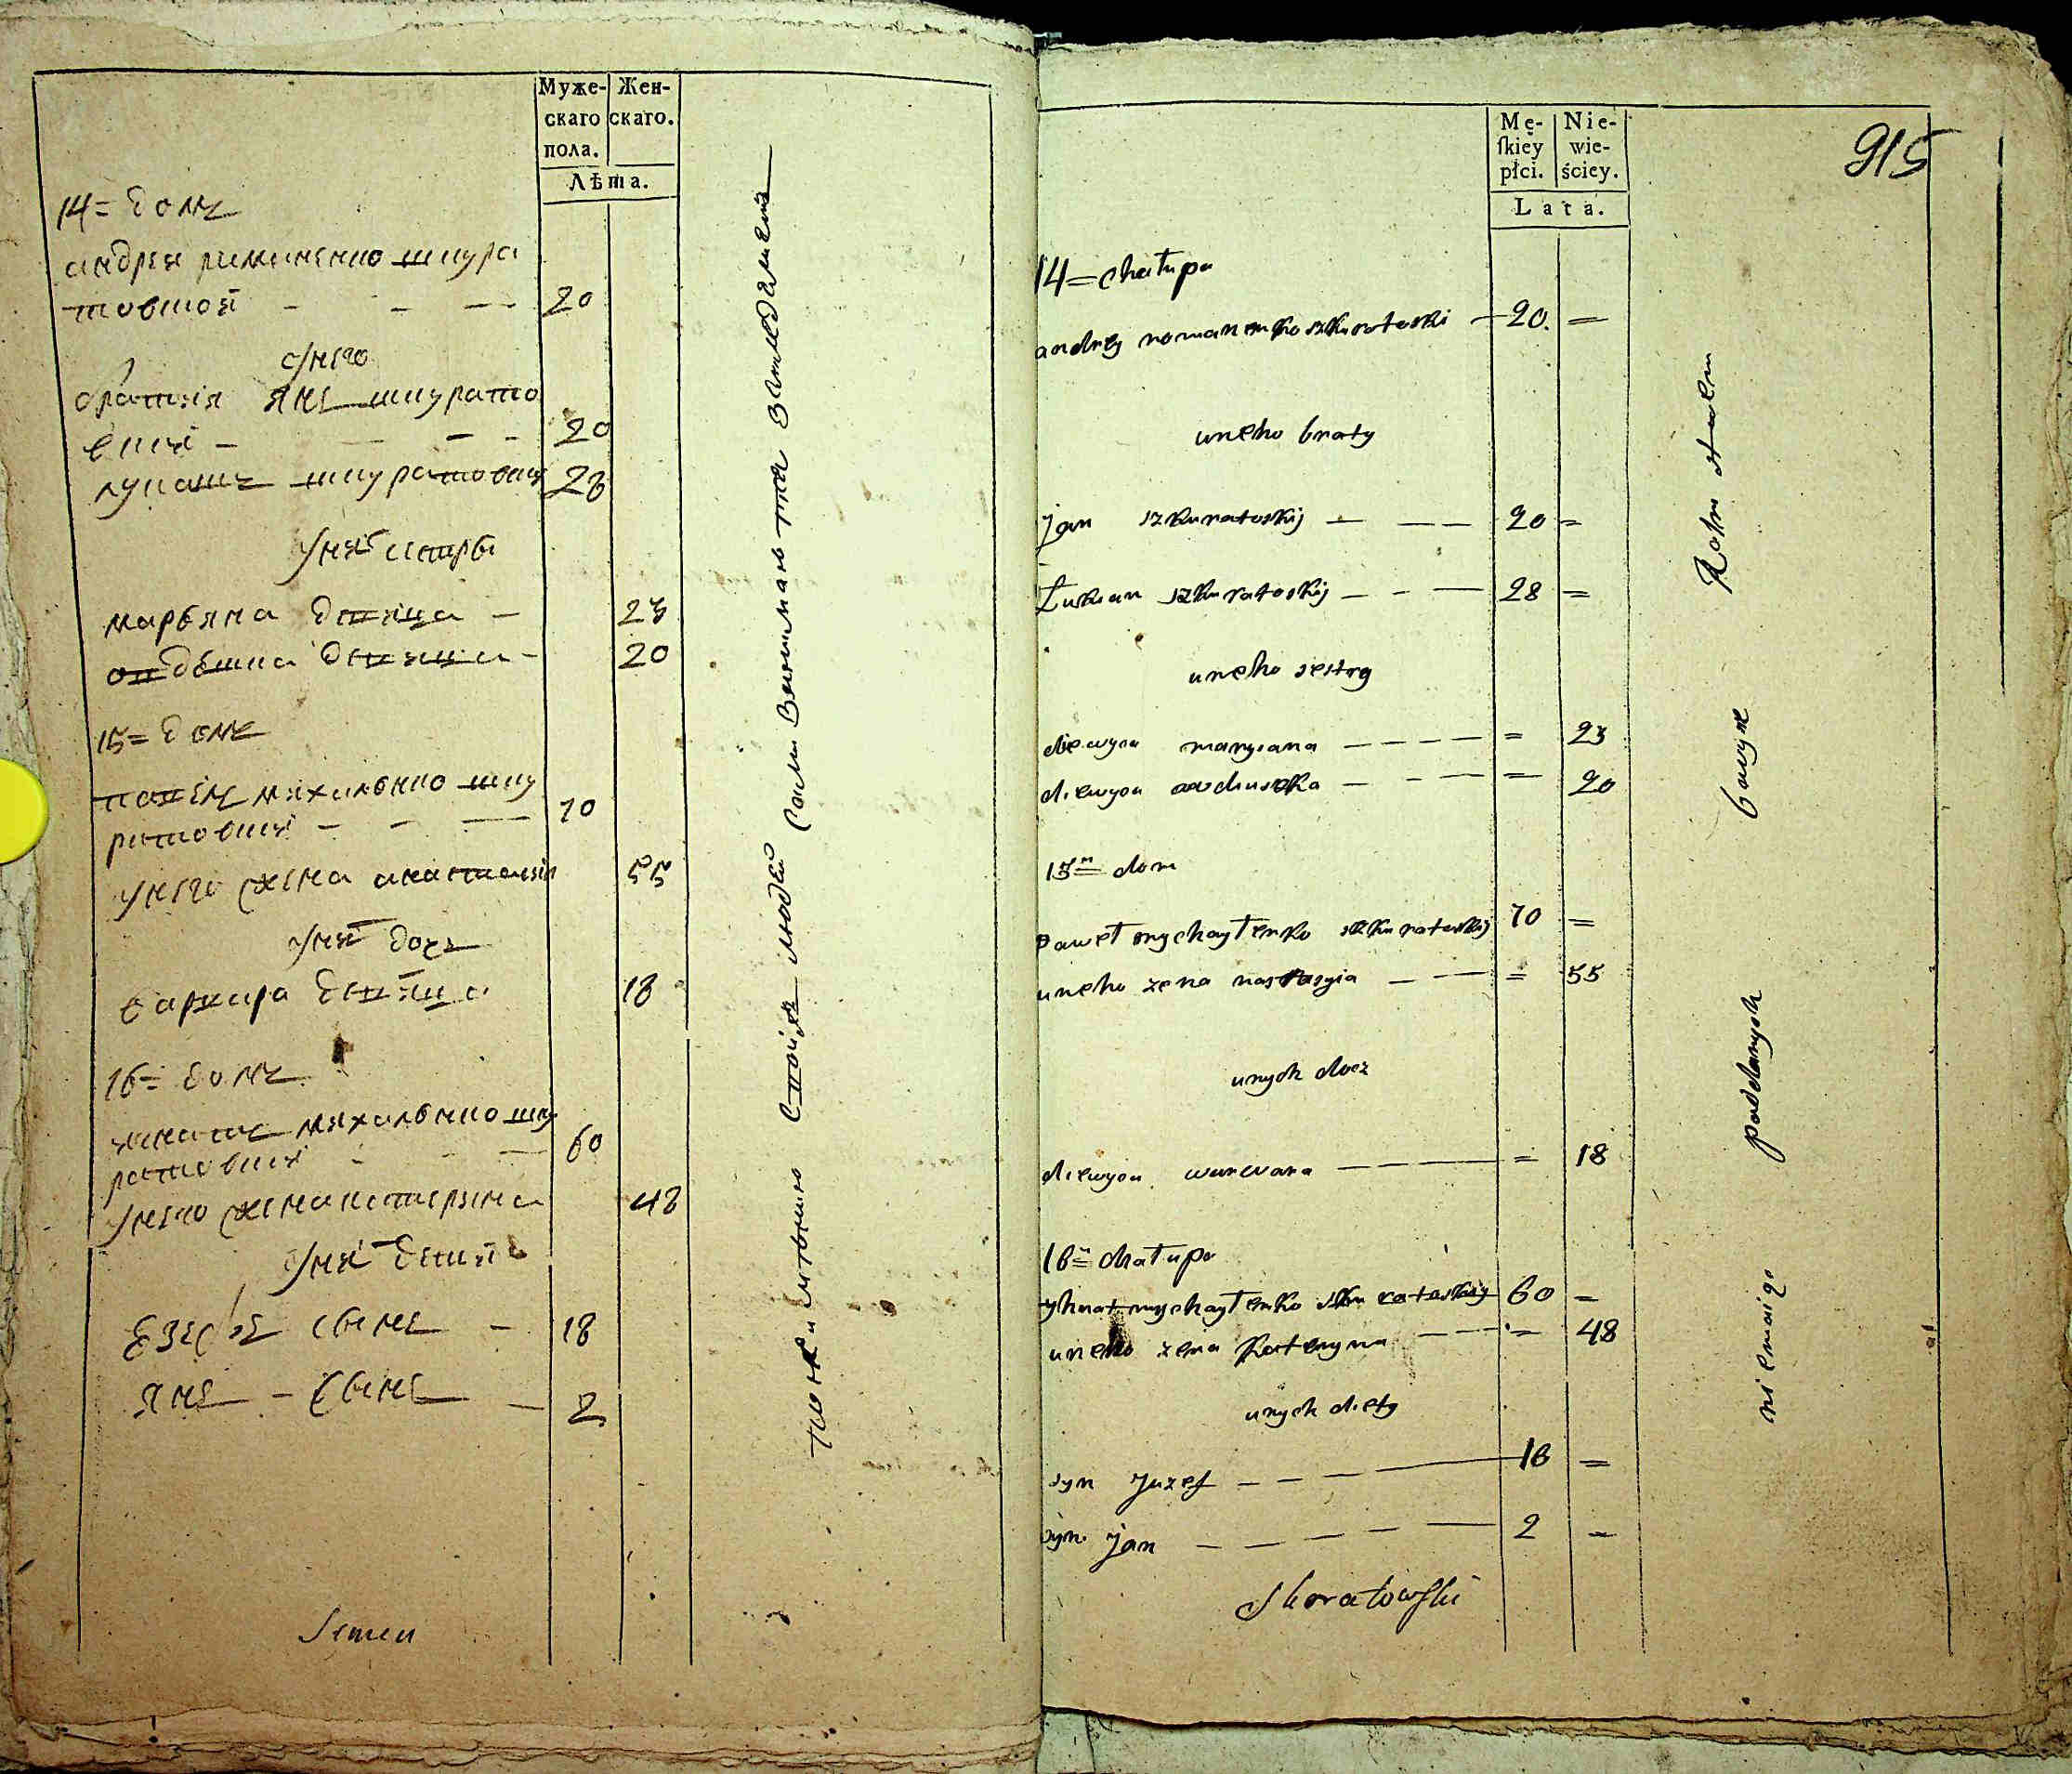 Муже-
скаго
пола.
Жен-
скаго.
Лѣта.
14= домъ
андрея романенко шкура
товской - - - 20
у него
братія янъ шкурато
вскі - - - 20
лукашъ шкуратовскі 28
у ниⷯ сестры
марьяна девица - 23
овдюшка девица - 20
15= домъ
павелъ михаленко шку
ратовскі - - - 70
у него жена анастасия 55
у ниⷯ дочь
варвара девица 18
16= домъ
игнатъ михаленко шку
ратовскі - - - 60
у него жена катерина 48
у ниⷯ дети
езефъ сынъ - 18
янъ - сынъ - 2
Semen
Mę-
ſkiey
płci.
Nie-
wie-
ściey.
Lata.
915
14= chałupa
andrey romanenko szkuratoski - 20. =
uneho braty
jan szkuratoskij - - - 20 =
Łukian szkuratoskij - - - 28 =
uneho sestry
diewyca maryana - - - - = 23
diewyca owdiuszka - - - = 20
15= dom
Paweł mychayłenko szkuratoskij 70 =
uneho zena nastasyia - - - = 55
unych docz
diewyca warwara - - - = 18
16= chałupa
yhnat mychayłenko szkuratoskij 60 =
uneho zena Kateryna - - - = 48
unych diety
syn Juzef - - - - 18 =
syn jan - - - - 2 =
Skoratowſki
niemaigo poddanych